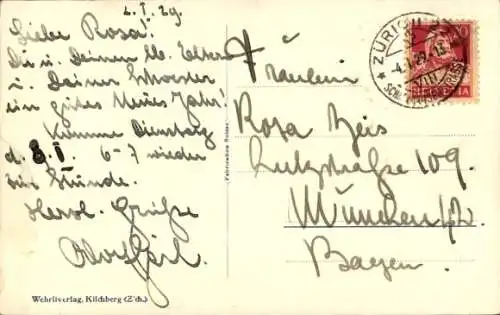 2. I. 29.
Liebe Rosa!
Dir u. Deinen lb. Eltern
u. Deiner Schwester
ein gutes Neues Jahr!
Komme Dienstag
d. 8. I. 6-7 wieder
zur Stunde.
Herzl. Grüße
Wehrliverlag, Kilchberg (Zch.)
ZÜRICH
HELVETIA
Fräulein
Rosa Zeis
109.
München
Bayern.